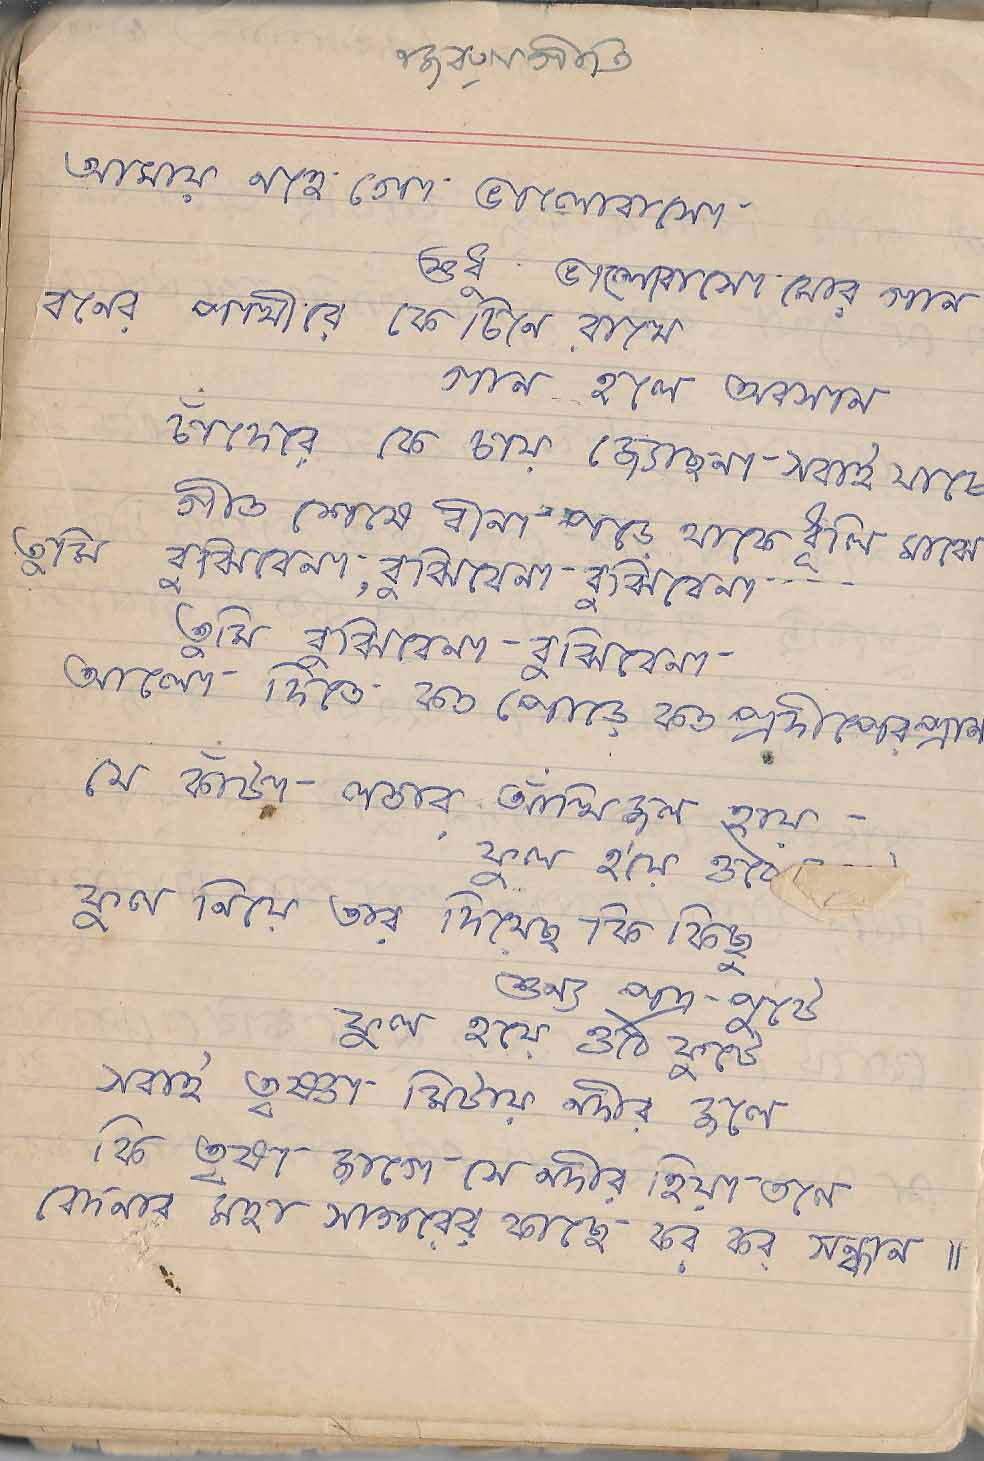 নজরুলগীতি
আমায় নহে গো ভালোবাসো
শুধু ভালোবাসো মোর গান
বনের পাখীরে কে চিনে রাখে
গান হলে অবসান
চাঁদেরে কে চায় জোছনা - সবাই যাচে
গীত শেষে বীনা পড়ে থাকে ধূলি মাঝে
তুমি বুঝিবেনা, বুঝিবেনা - বুঝিবেনা ----
তুমি বুঝিবেনা - বুঝিবেনা -
আলো দিতে কত পোড়ে কত প্রদীপের প্রান
যে কাঁটা - লতার আঁখিজল হায় -
ফুল হয়ে ওঠে
ফুল নিয়ে তার দিয়েছ কি কিছু
শুন্য পত্র - পুটে
ফুল হয়ে ওঠে ফুটে
সবাই তৃষ্ণা মিটায় নদীর জলে
কি তৃষা জাগে সে নদীর হিয়া তলে
বেদনার মহা সাগরের কাছে কর কর সন্ধান ॥